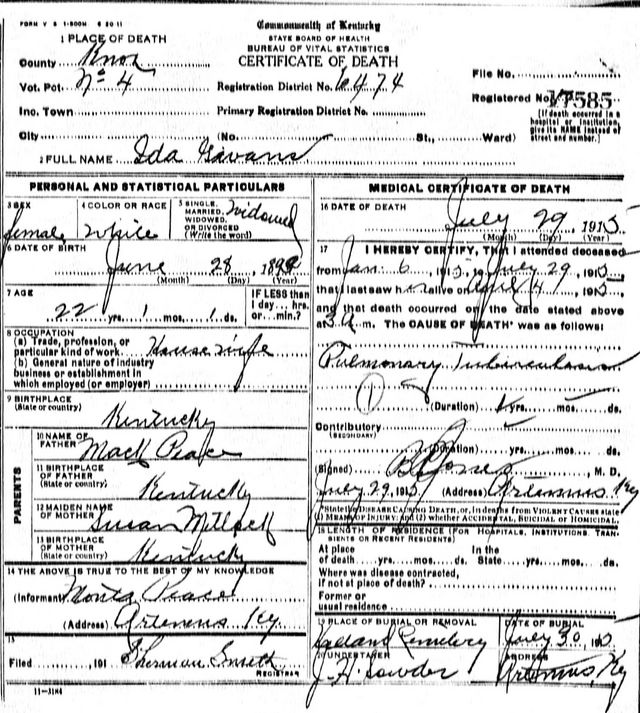 FORM V S 1-500M 6 20-11
Commonwealth of Kentucky
STATE BOARD OF HEALTH
BUREAU OF VITAL STATISTICS
CERTIFICATE OF DEATH
1 PLACE OF DEATH
County Knox
Vot. Pct. No 4
Registration District No. 6474
File No.
Registered No. 17585
Inc. Town
Primary Registration District No.
[If death occurred in a hospital or institution, give its NAME instead of street and number.]
City (No. St., Ward)
2 FULL NAME Ida Gavans
PERSONAL AND STATISTICAL PARTICULARS
3 SEX female
4 COLOR OR RACE White
5 SINGLE, MARRIED, WIDOWED, OR DIVORCED (Write the word) Widowed
6 DATE OF BIRTH
June 28
(Month) (Day) (Year)
7 AGE
22 yrs. 1 mos. 1 ds.
IF LESS than 1 day ... hrs. or ... min.?
8 OCCUPATION
(a) Trade, profession, or particular kind of work Housewife
(b) General nature of industry business or establishment in which employed (or employer)
9 BIRTHPLACE
(State or country) Kentucky
PARENTS
10 NAME OF FATHER Mack Peace
11 BIRTHPLACE OF FATHER (State or country) Kentucky
12 MAIDEN NAME OF MOTHER Susan
13 BIRTHPLACE OF MOTHER (State or country) Kentucky
14 THE ABOVE IS TRUE TO THE BEST OF MY KNOWLEDGE
(Informant) Peace
(Address) Artemus Ky.
15
Filed 191 Sherman Smith
REGISTRAR
11-3184
MEDICAL CERTIFICATE OF DEATH
16 DATE OF DEATH
July 29, 1915
(Month) (Day) (Year)
17 I HEREBY CERTIFY, That I attended deceased
from Jan. 6, 1915, to July 29, 1915
that I last saw her alive on 1915
and that death occurred on the date stated above
at m. The CAUSE OF DEATH* was as follows:
Pulmonary Tuberculosis
(1)
(Duration) yrs. mos. ds.
Contributory
(SECONDARY)
(Duration) yrs. mos. ds.
(Signed) Jones, M. D.
July 29, 1915 (Address) Artemus Ky
*State the DISEASE CAUSING DEATH, or, in deaths from VIOLENT CAUSES state (1) MEANS OF INJURY; and (2) whether ACCIDENTAL, SUICIDAL OR HOMICIDAL.
18 LENGTH OF RESIDENCE (FOR HOSPITALS, INSTITUTIONS, TRANSIENTS OR RECENT RESIDENTS)
At place of death yrs. mos. ds. In the State yrs. mos. ds.
Where was disease contracted, if not at place of death?
Former or usual residence
19 PLACE OF BURIAL OR REMOVAL
Cemetery
DATE OF BURIAL
July 30, 1915
20 UNDERTAKER
J. H. Lowder
ADDRESS
Artemus, Ky